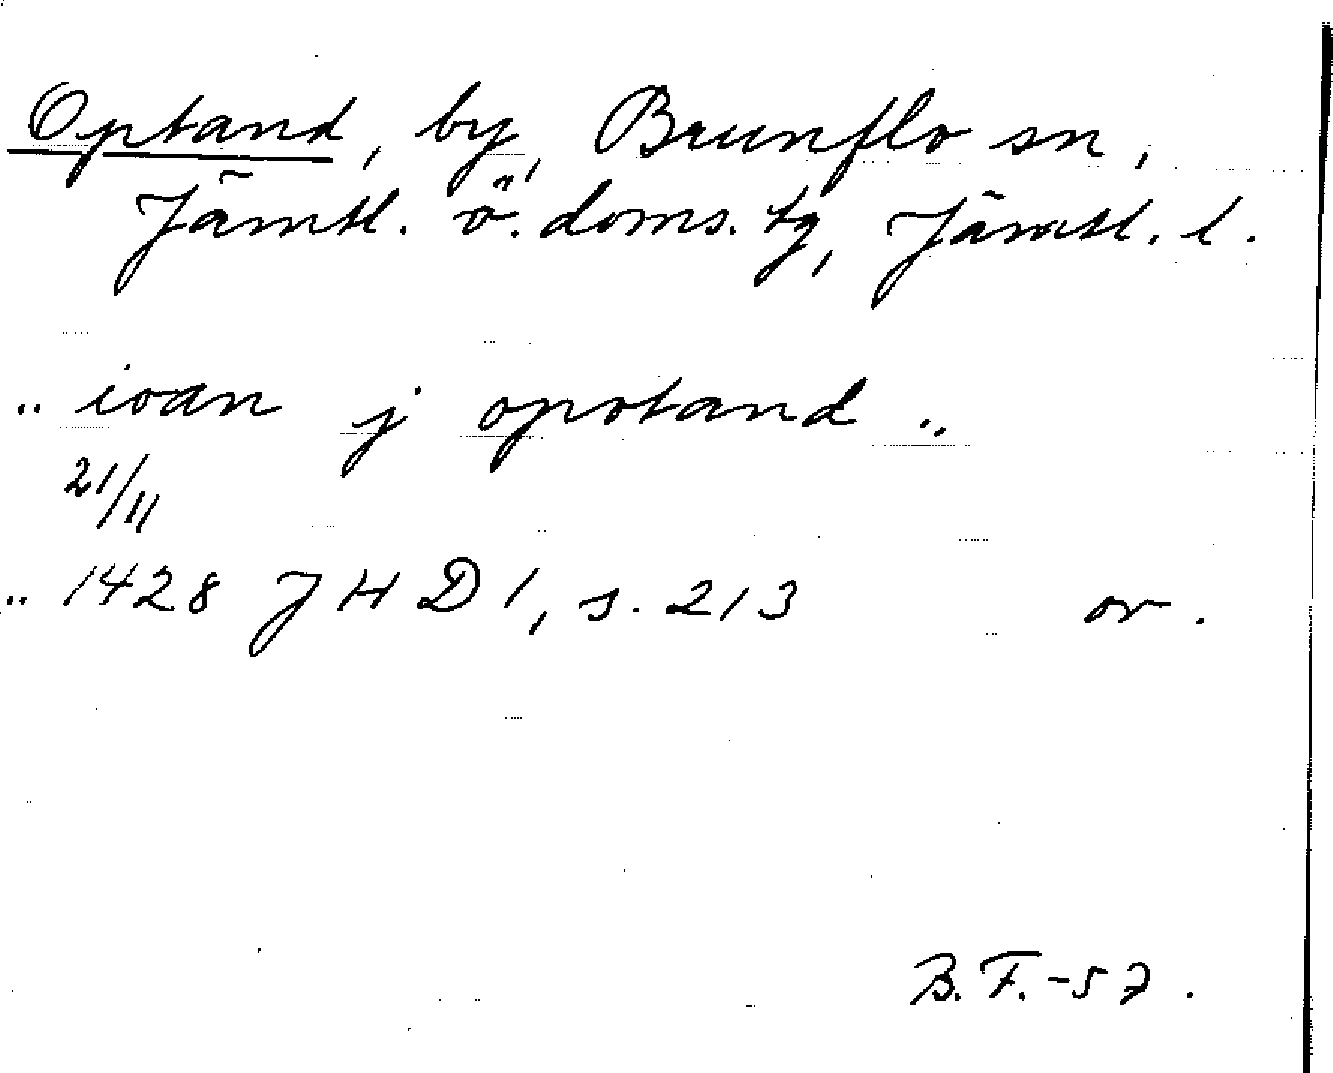 Optand, by, Brunflo sn,
Jämtl. ö. doms. tg, Jämtl. l.
.. ioan j opotand ..
21/11
.. 1428 JHD 1, s. 213 or.
B.F.-57.